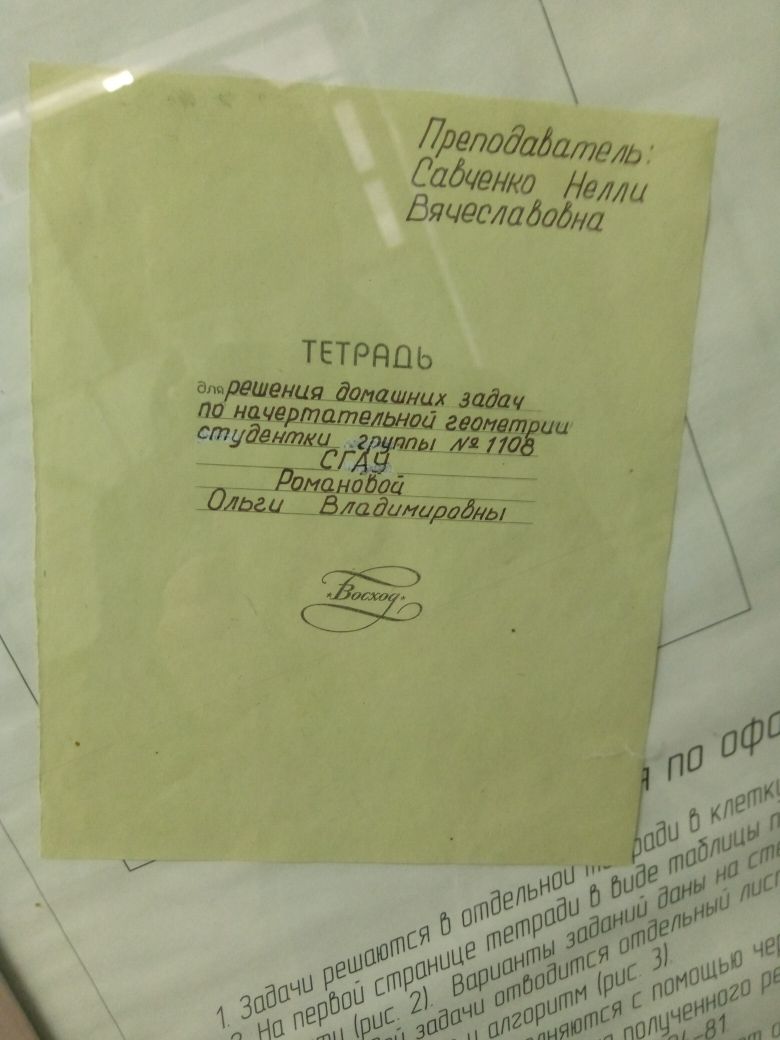 Преподаватель:
Савченко Нелли
Вячеславовна
ТЕТРАДЬ
для решения домашних задач
по начертательной геометрии
студентки группы №1108
СГАУ
Романовой
Ольги Владимировны
Восход
я по офо
1. Задачи решаются в отдельной тетради в клетку
2. На первой странице тетради в виде таблицы п
(рис. 2). Варианты заданий даны на сте
задачи отводится отдельный лист
и алгоритм (рис. 3).
с помощью чер
полученного ре
81